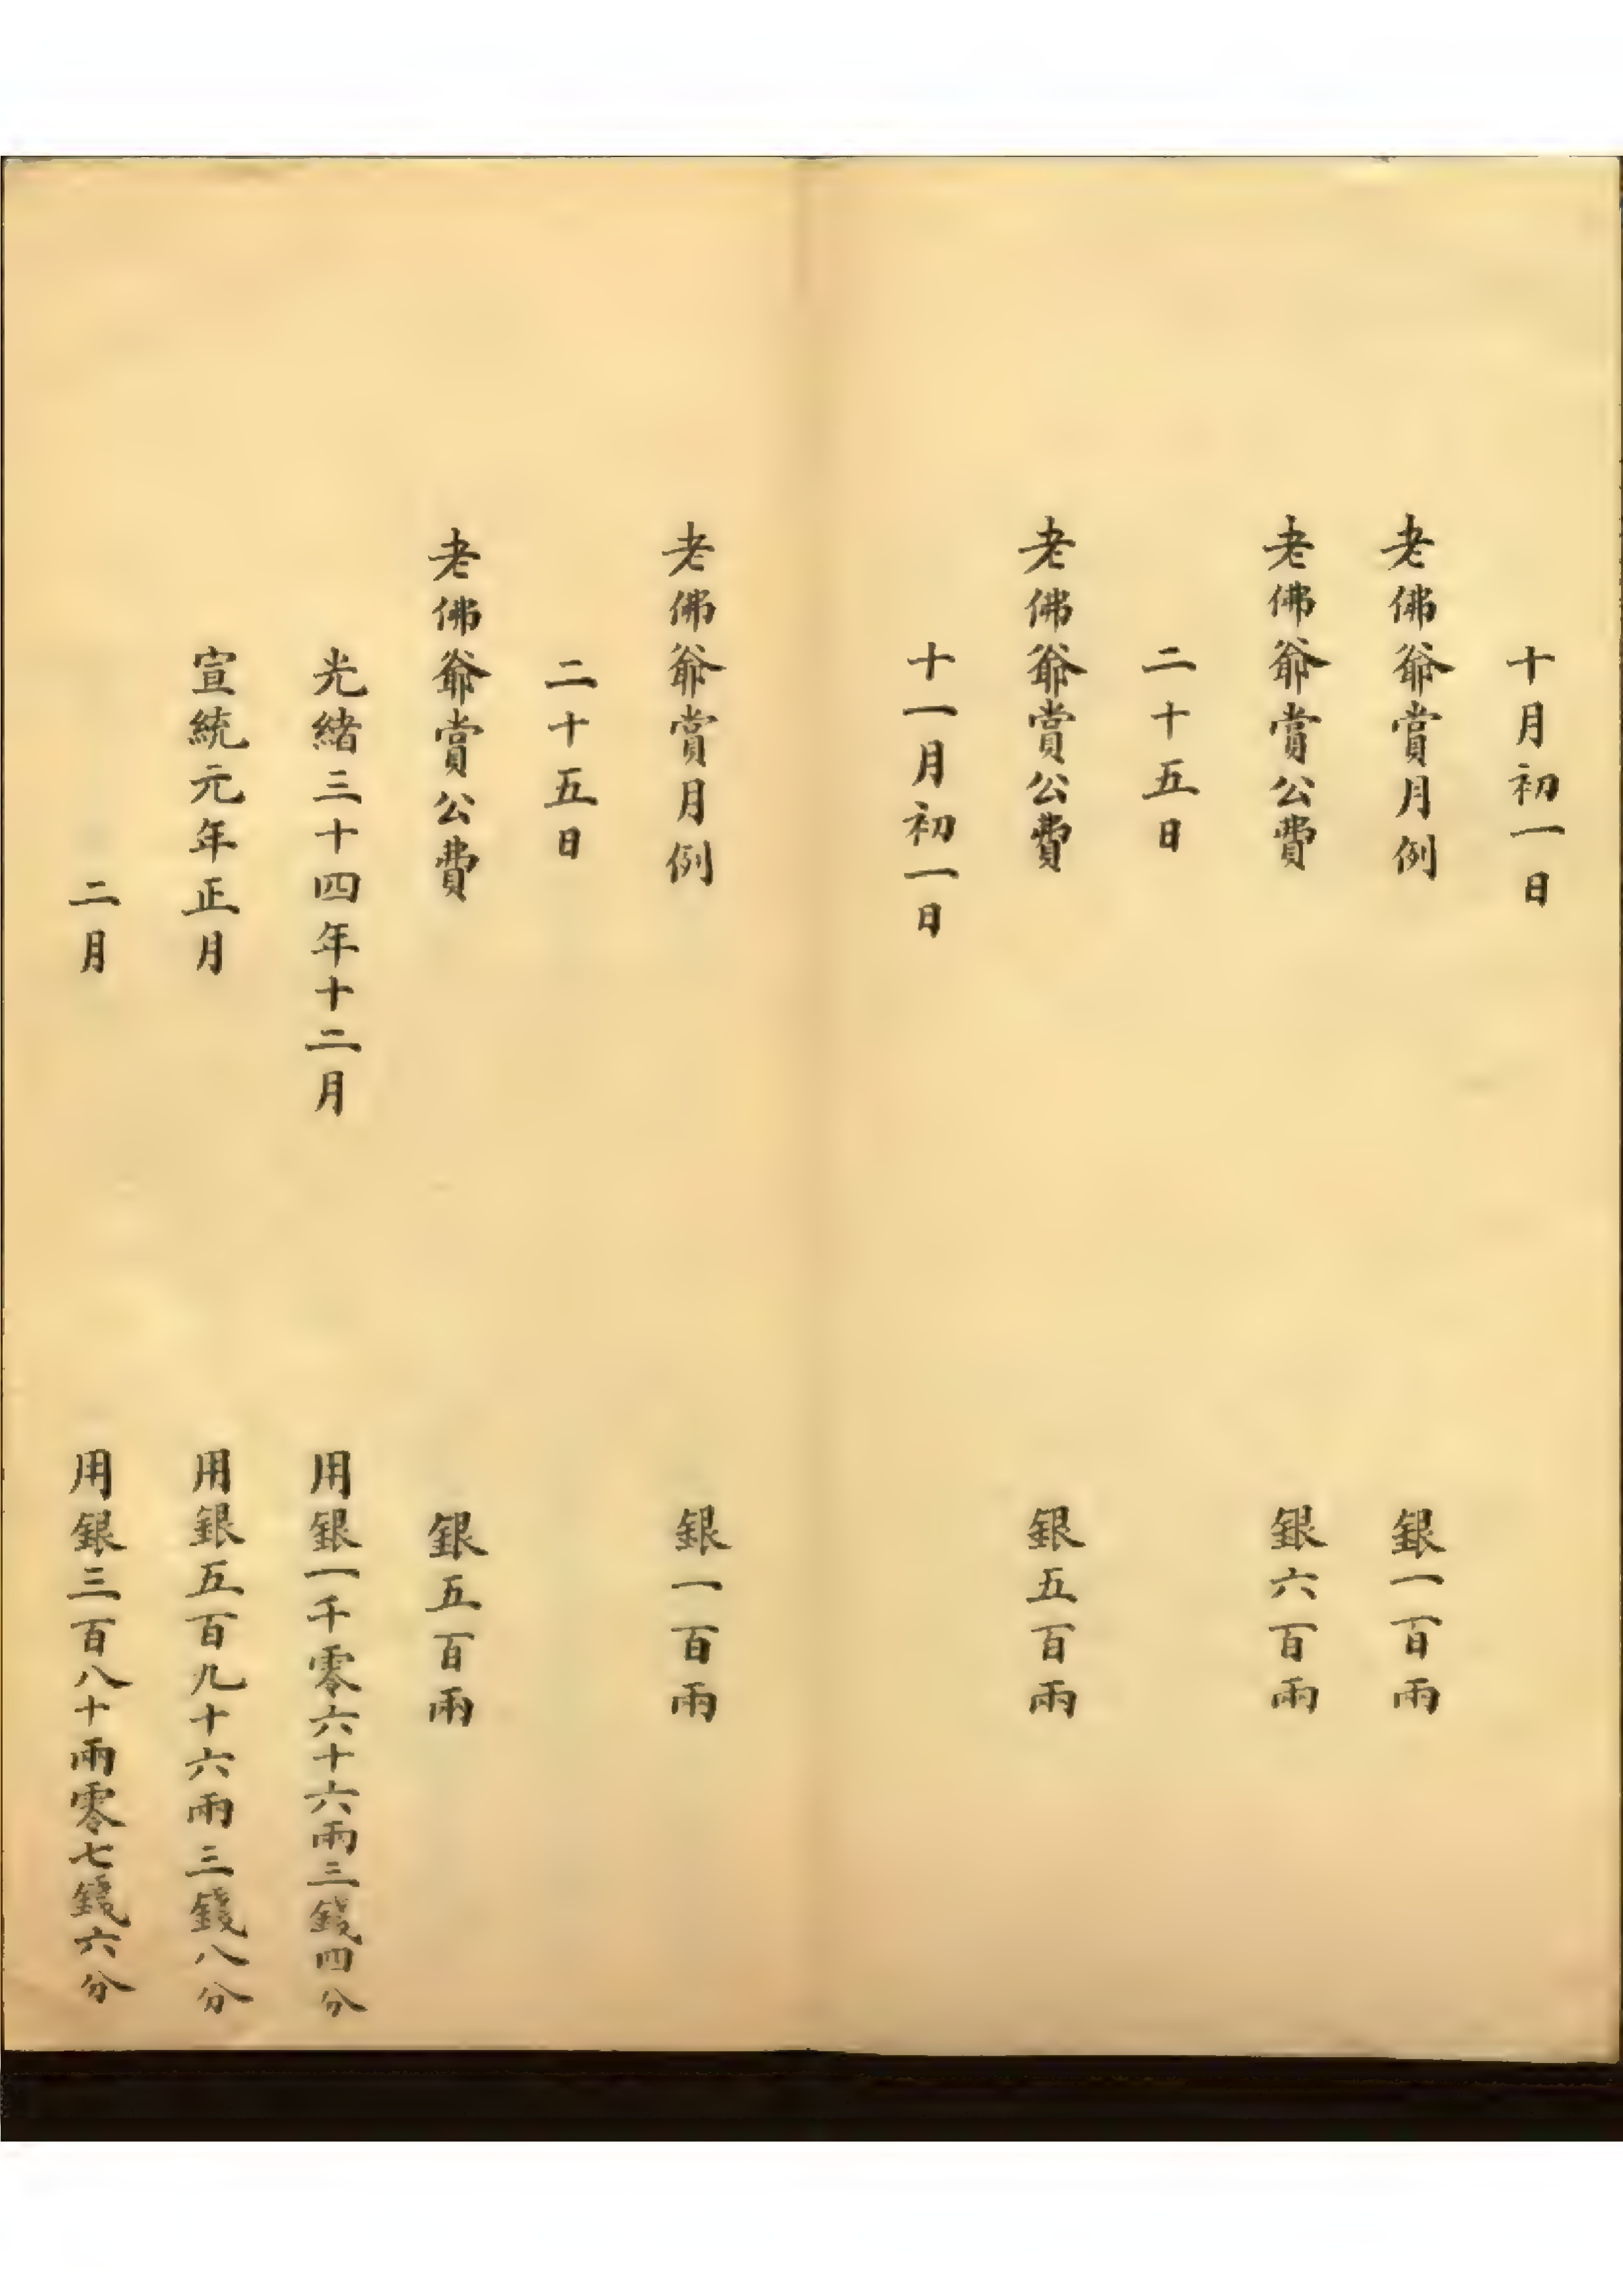 十月初一日
老佛爺賞月例 銀一百兩
老佛爺賞公費 銀六百兩
二十五日
老佛爺賞公費 銀五百兩
十一月初一日
老佛爺賞月例 銀一百兩
二十五日
老佛爺賞公費 銀五百兩
光緒三十四年十二月 用銀一千零六十六兩三錢四分
宣統元年正月 用銀五百九十六兩三錢八分
二月 用銀三百八十兩零七錢六分